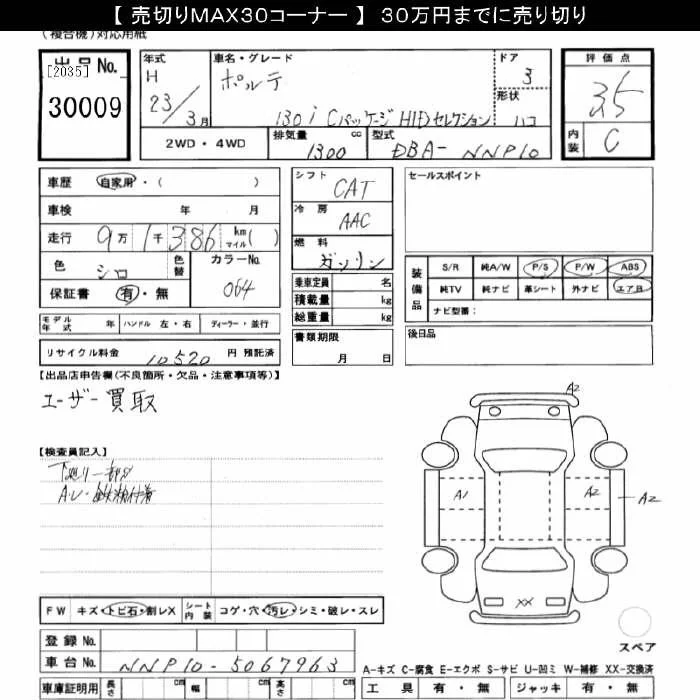 【 売切りMAX30コーナー 】 30万円までに売り切り
(複合機)対応用紙
出品No.
[2035]
30009
年式
H
23/3月
車名・グレード
ポルテ
130i Cパッケージ HIDセレクション
ドア
3
形状
ハコ
評価点
3.5
内装
C
2WD・4WD
排気量 cc
1300
型式
DBA-NNP10
車歴 自家用・( )
車検 年 月
走行 9万1千386 km マイル( )
色 シロ
色替
カラーNo.
064
保証書 有・無
シフト
CAT
冷房
AAC
燃料
ガソリン
乗車定員 名
積載量 kg
総重量 kg
セールスポイント
装備品
S/R 純A/W P/S P/W ABS
純TV 純ナビ 革シート 外ナビ エアB
ナビ型番:
モデル年式 年 ハンドル 左・右 ディーラー・並行
リサイクル料金 10520 円 預託済
書類期限
月 日
後日品
【出品店申告欄(不良箇所・欠品・注意事項等)】
ユーザー買取
【検査員記入】
下廻り一部サビ
A2
A1
A2
A2
XX
スペア
FW キズ・トビ石・割レX
シート内装 コゲ・穴・汚レ・シミ・破レ・スレ
登録No.
車台No. NNP10-5067963
車庫証明用 長さ cm 幅 cm 高さ cm
A-キズ C-腐食 E-エクボ S-サビ U-凹ミ W-補修 XX-交換済
工具 有・無 ジャッキ 有・無